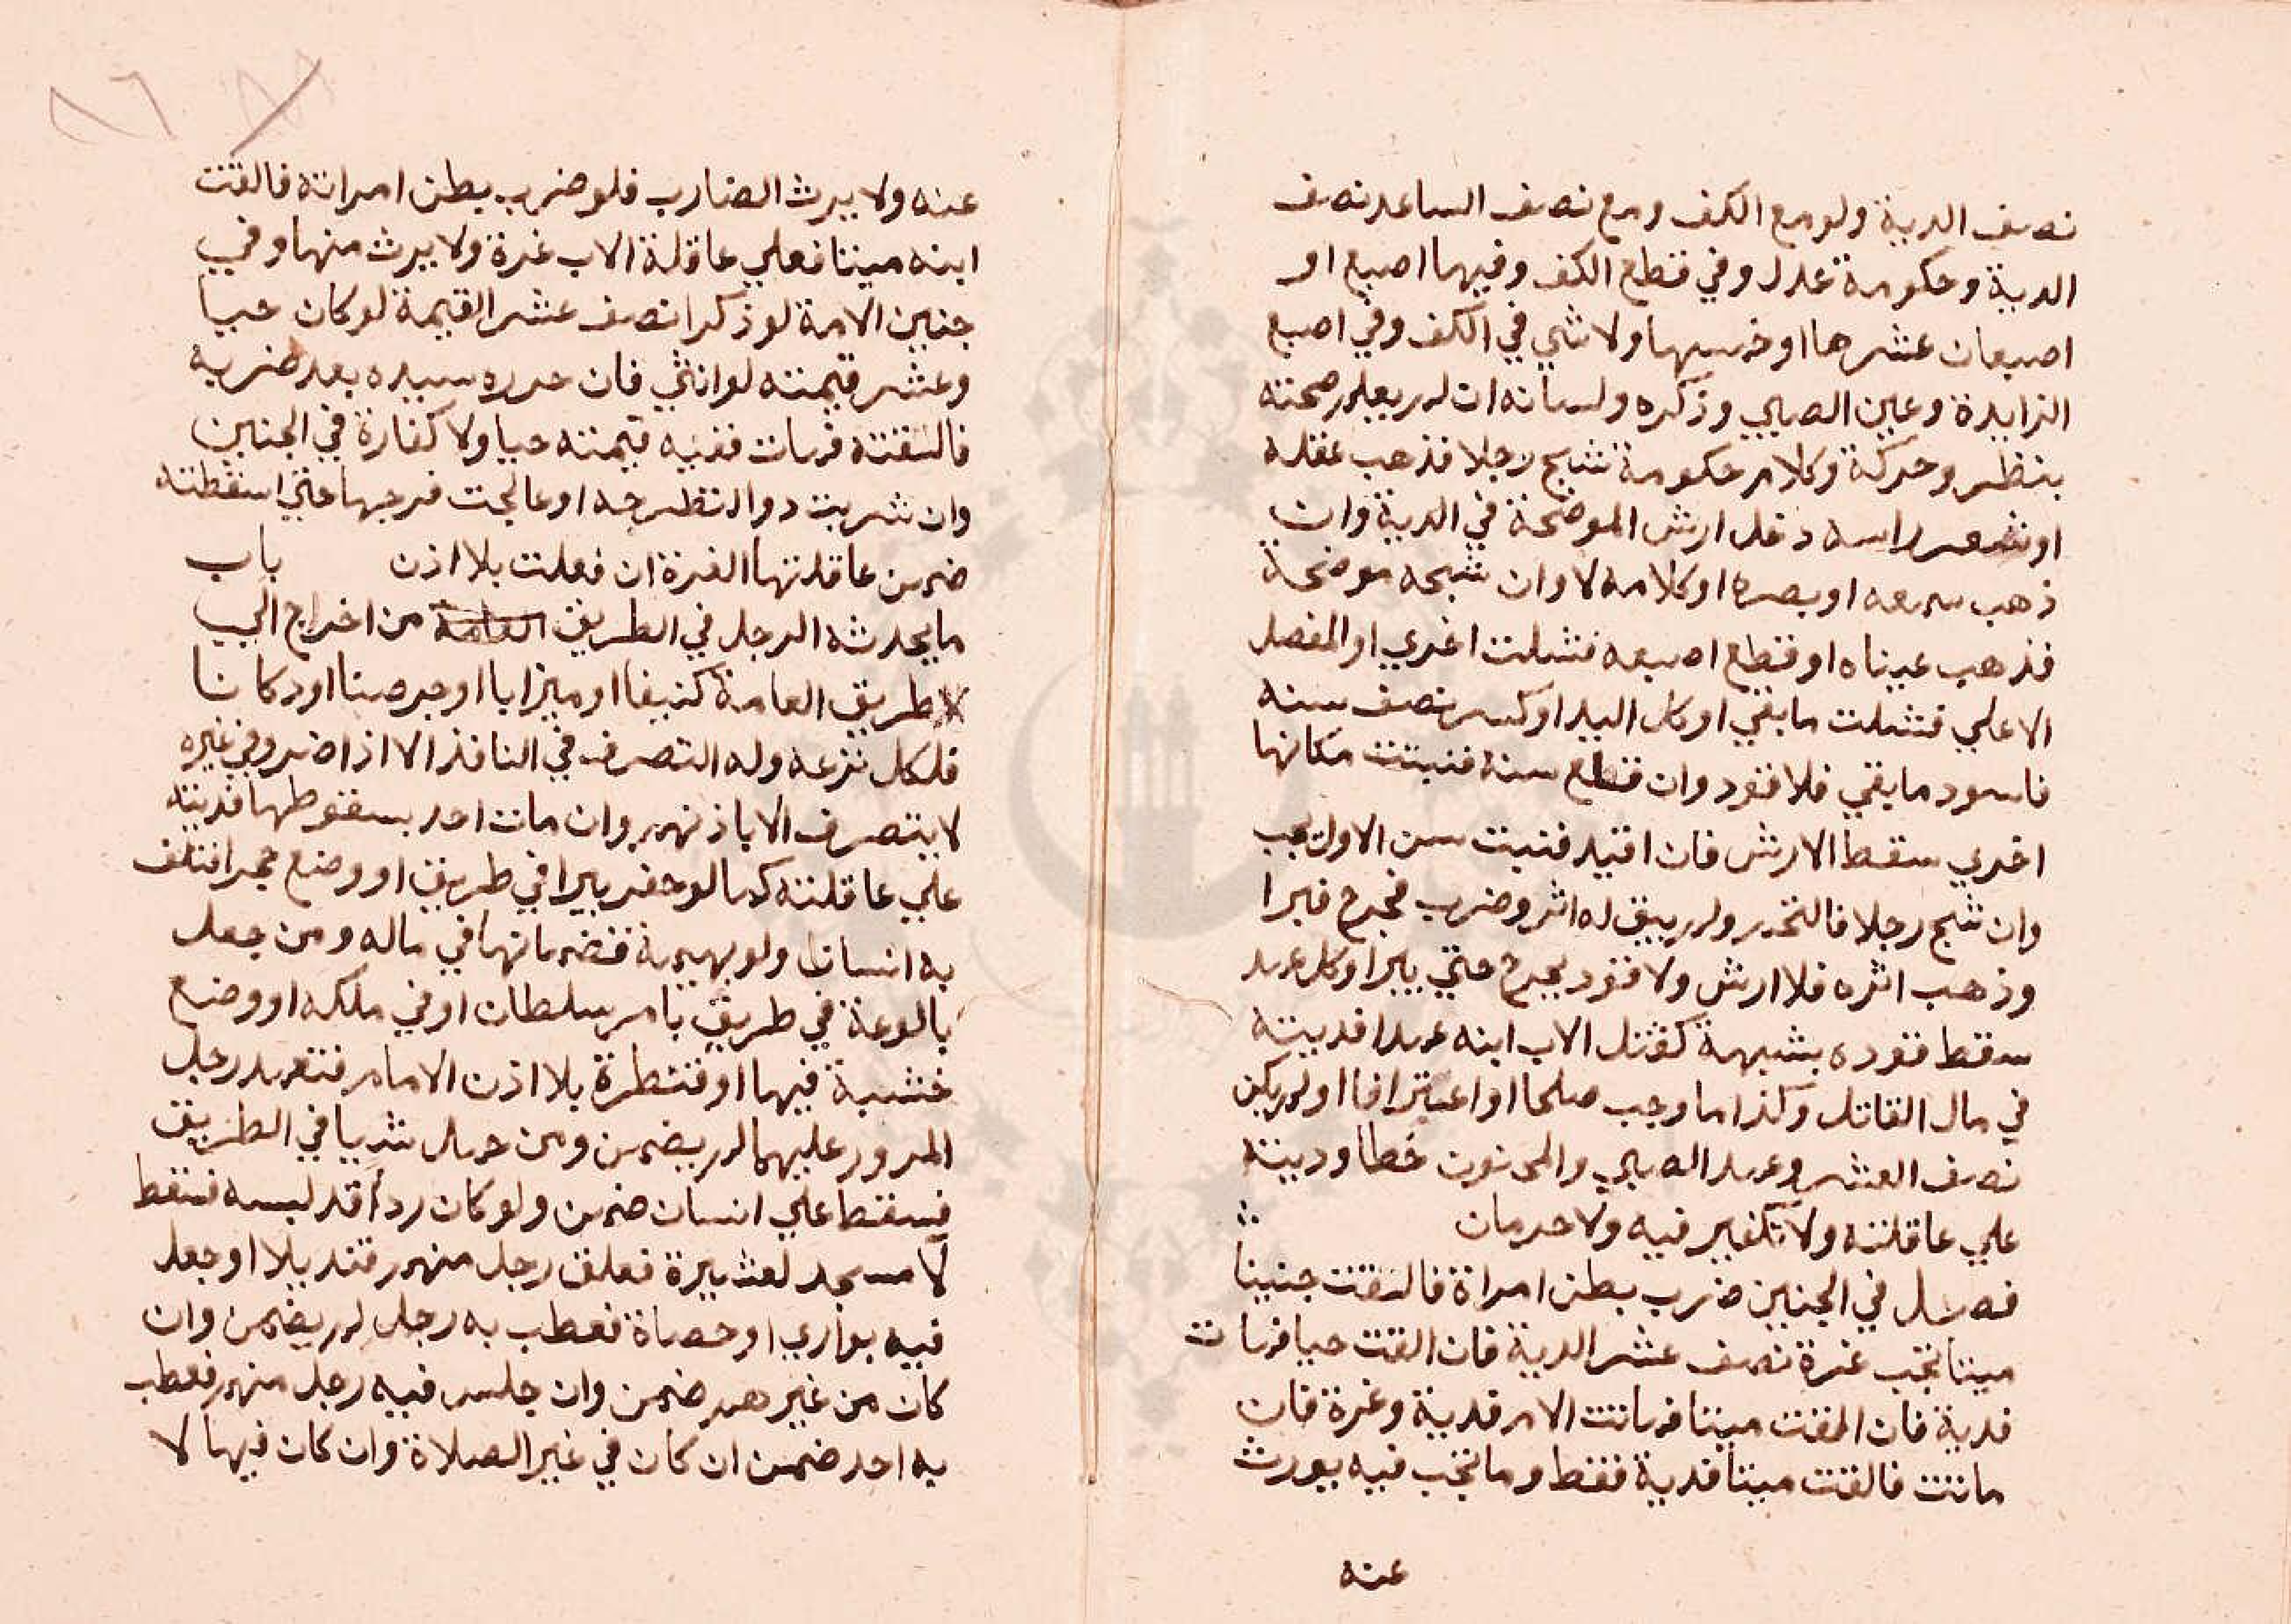 نصف الدية ولو مع الكف ومع نصف الساعد نصف
الدية وحكومة عدل وفي قطع الكف وفيها اصبع او
اصبعان عشرها او خمسها ولا شي في الكف وفي اصبع
الزايدة وعين الصبي وذكره ولسانه ان لم يعلم صحته
بنظر وحركة وكلام حكومة شج رجلا فذهب عقله
او شعر راسه دخل ارش الموضحة في الدية وان
ذهب سمعه او بصره او كلامه لا وان شجه موضحة
فذهب عيناه او قطع اصبعه فشلت اخري او المفصل
الاعلي فشلت ما بقي او كل اليد او كسر نصف سنه
فاسود ما بقي فلا قود وان قطع سنه فنبتت مكانها
اخري سقط الارش فان اقيد فنبت سن الاول يجب
وان شج رجلا فالتحم ولم يبق له اثر وضرب فجرح فبرا
وذهب اثره فلا ارش ولا قود بجرح حتي يبرا وكل عمد
سقط قوده بشبهة كقتل الاب ابنه عمدا فديته
في مال القاتل وكذا ما وجب صلحا او اعترافا او لم يكن
نصف العشر وعمد الصبي والمجنون خطا وديته
علي عاقلته ولا تكفير فيه ولا حرمان
فصل في الجنين ضرب بطن امراة فالقت جنينا
ميتا تجب غرة نصف عشر الدية فان القت حيا فمات
فدية فان القت ميتا فماتت الام فدية وغرة فان
ماتت فالقت ميتا فدية فقط وما تجب فيه يورث
عنه
عنه ولا يرث الضارب فلو ضرب بطن امراته فالقت
ابنه ميتا فعلي عاقلة الاب غرة ولا يرث منها وفي
جنين الامة لو ذكرا نصف عشر القيمة لو كان حيا
وعشر قيمته لو انثي فان حرره سيده بعد ضربه
فالقته فمات ففيه قيمته حيا ولا كفارة في الجنين
وان شربت دوا لتطرحه او عالجت فرجها حتي اسقطته
ضمن عاقلتها الغرة ان فعلت بلا اذن باب
ما يحدثه الرجل في الطريق العامة من اخراج الي
طريق العامة كنيفا او ميزابا او جرصنا او دكانا
فلكل نزعه وله التصرف في النافذ الا اذا ضر وفي غيره
لا يتصرف الا باذنهم وان مات احد بسقوطها فديته
علي عاقلته كما لو حفر بيرا في طريق او وضع حجرا فتلف
به انسانا ولو بهيمة فضمانها في ماله ومن جعل
بالوعة في طريق بامر سلطان او في ملكه او وضع
خشبة فيها او قنطرة بلا اذن الامام فتعمد رجل
المرور عليهما لم يضمن ومن حمل شييا في الطريق
فسقط علي انسان ضمن ولو كان ردأ قد لبسه فسقط
لا مسجد لعشيرة فعلق رجل منهم قنديلا او جعل
فيه بواري او حصاة فعطب به رجل لم يضمن وان
كان من غيرهم ضمن وان جلس فيه رجل منهم فعطب
به احد ضمن ان كان في غير الصلاة وان كان فيها لا